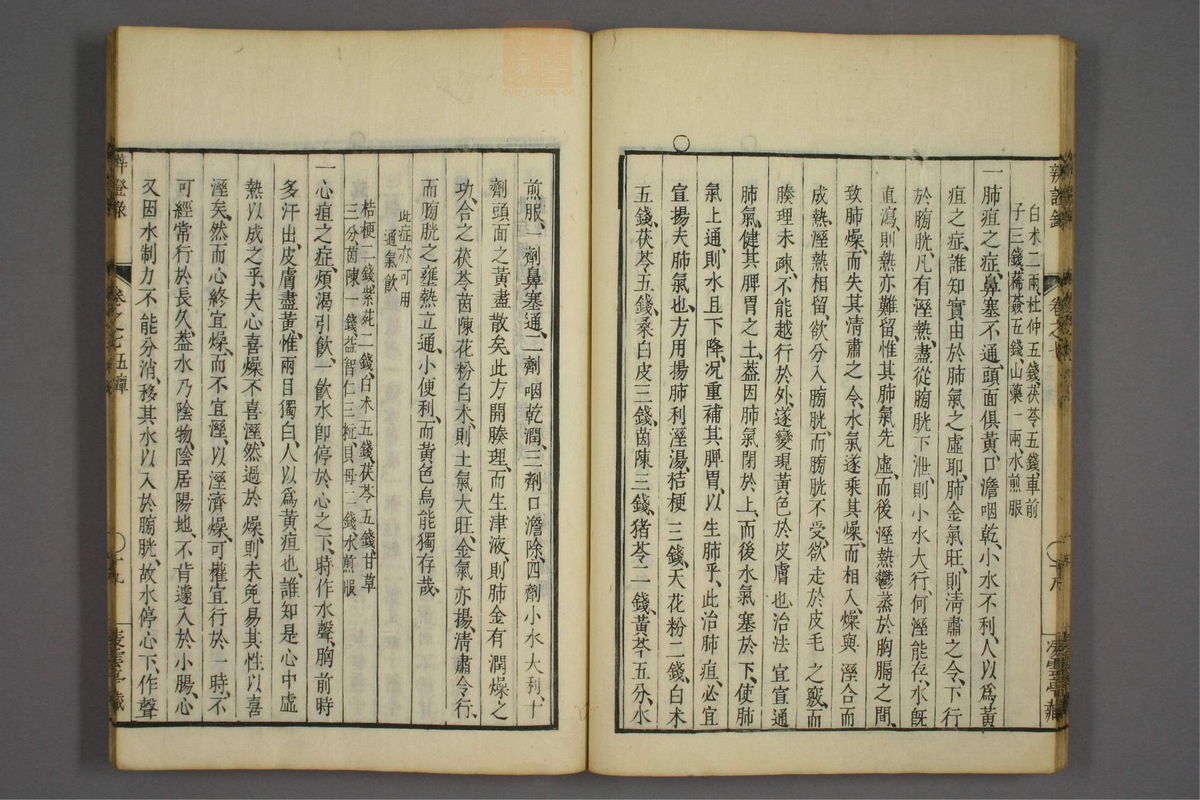 白朮二兩杜仲五錢、茯苓五錢、車前
子三錢、薏苡五錢、山藥一兩水煎服
一肺疸之症、鼻塞不通、頭面俱黃、口澹咽乾、小水不利、人以爲黃
疸之症、誰知實由於肺氣之虛耶、肺金氣旺、則淸肅之令、下行
於膀胱、凡有溼熱、盡從膀胱下泄、則小水大行、何溼能存、水旣
直瀉、則熱亦難留、惟其肺氣先虛、而後溼熱鬱蒸於胸膈之間、
致肺燥、而失其淸肅之令、水氣遂乘其燥、而相入、燥與溼合而
成熱、溼熱相留、欲分入膀胱、而膀胱不受、欲走於皮毛之竅、而
腠理未疎、不能越行於外、遂變現黃色於皮膚也、治法宜宣通
肺氣、健其脾胃之土、蓋因肺氣閉於上、而後水氣塞於下、使肺
氣上通、則水且下降、况重補其脾胃、以生肺乎、此治肺疸、必宜
宣揚夫肺氣也、方用揚肺利溼湯、桔梗三錢、天花粉二錢、白朮
五錢、茯苓五錢、桑白皮三錢、茵陳三錢、猪苓二錢、黃芩五分、水
煎服、一劑鼻塞通、二劑咽乾潤、三劑口澹除、四劑小水大利、十
劑頭面之黃盡散矣、此方開腠理、而生津液、則肺金有潤燥之
功、合之茯苓茵陳花粉白朮、則土氣大旺、金氣亦揚、淸肅令行、
而膀胱之壅熱立通、小便利、而黃色烏能獨存哉、
此症亦可用
通氣飮
桔梗二錢、紫菀二錢、白朮五錢、茯苓五錢、甘草
三分、茵陳一錢、益智仁三粒、貝母二錢、水煎服
一心疸之症、煩渴引飮、一飮水卽停於心之下、時作水聲、胸前時
多汗出、皮膚盡黃、惟兩目獨白、人以爲黃疸也、誰知是心中虛
熱以成之乎、夫心喜燥不喜溼、然過於燥、則未免易其性以喜
溼矣、然而心終宜燥、而不宜溼、以溼濟燥、可權宜行於一時、不
可經常行於長久、蓋水乃陰物、陰居陽地、不肯遽入於小腸、心
又因水制力不能分消、移其水以入於膀胱、故水停心下、作聲